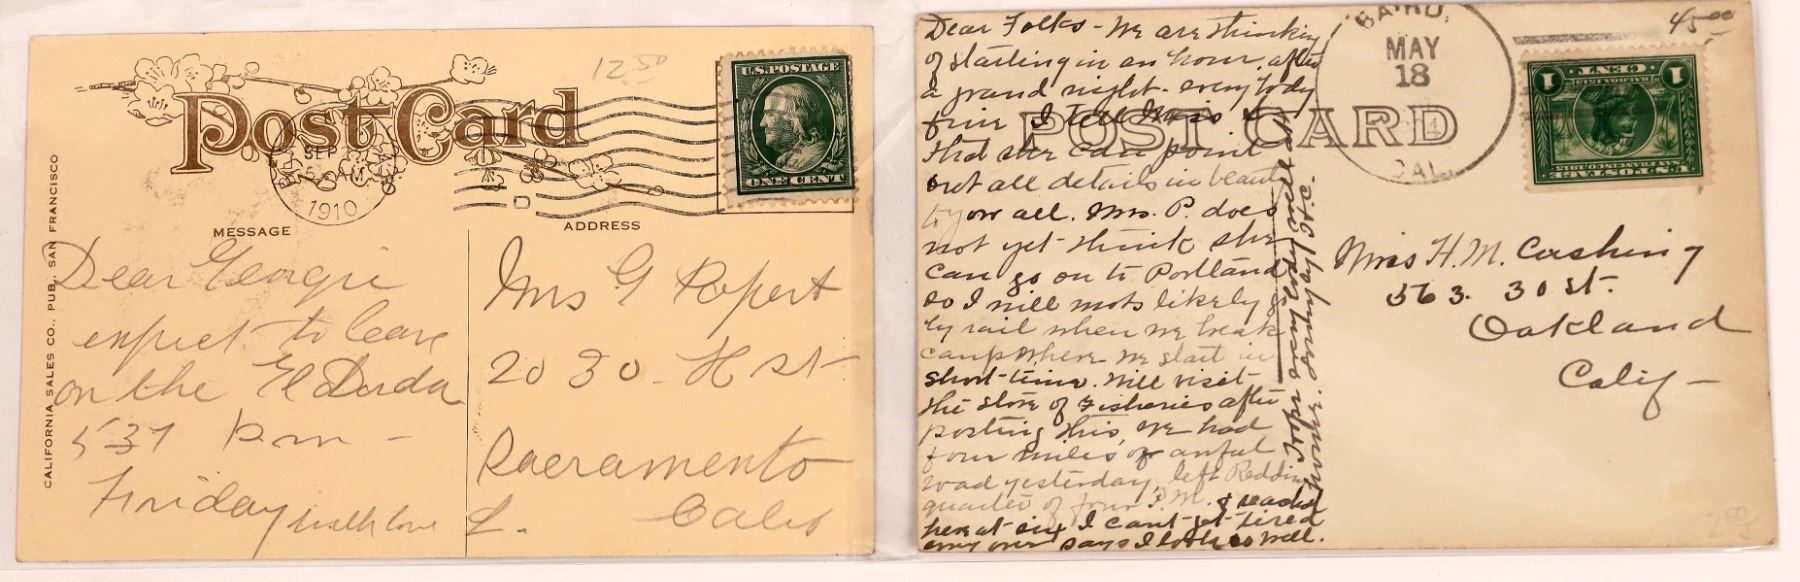 Post Card
12.50
U.S. POSTAGE
ONE CENT
SEP
5 AM
1910
D
MESSAGE
ADDRESS
CALIFORNIA SALES CO., PUB., SAN FRANCISCO
Dear Georgie
expect to leave
on the El Dorda
5 37 pm -
Friday with love
L.
Mrs G Popert
2030 - H st
Sacramento
Calif
Dear Folks - We are thinking
of starting in an hour, after
a grand night - everybody
fine I tell Miss
that she can point
out all details in beauty
to you all. Mrs. P. does
not yet think she
can go on to Portland
so I will mots likely go
by rail when we break
camp where we start in
short time. Will visit
the store of Fisheries after
posting this, we had
four miles of awful
road yesterday, left Redding
quarter of four P.M. & reached
here at six I can't get tired
every one says I look so well.
Hope every body been
home. Lonely to H.C.
POST CARD
BAIRD,
MAY
18
CAL.
45.00
1 CENT 1
SAN FRANCISCO
U.S. POSTAGE
Miss H. M. Cushing
563. 30 st.
Oakland
Calif -